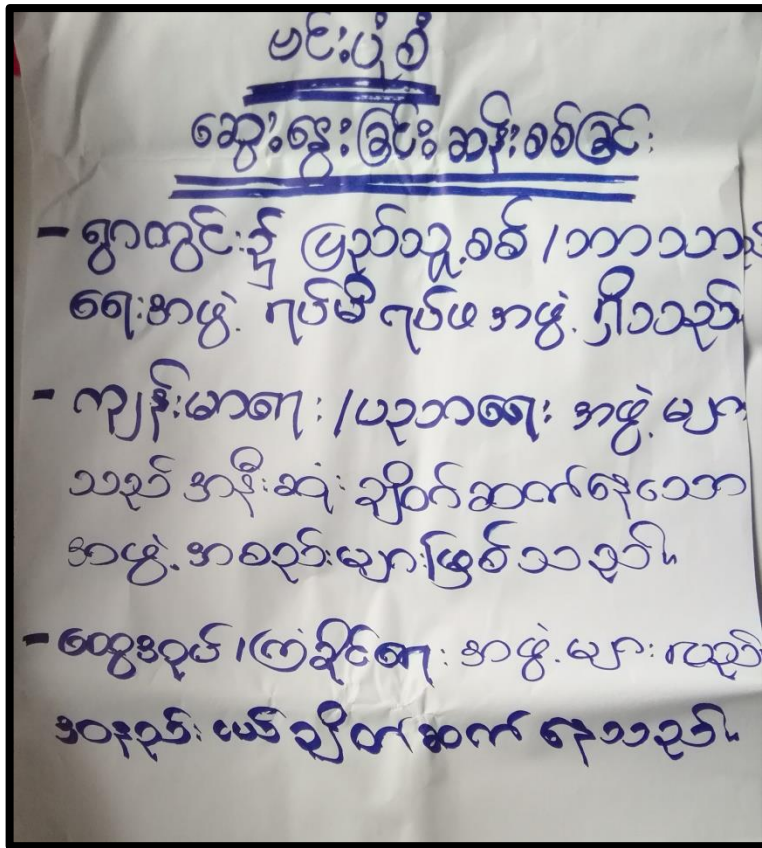 ဗင်းပုံစံ
ဆွေးနွေးခြင်းဆန်းစစ်ခြင်း
- ရွာတွင်း၌ ပြည်သူ့စစ် / ဘာသာ
ရေးအဖွဲ့ ရပ်မိ ရပ်ဖ အဖွဲ့ ရှိသည်။
- ကျန်းမာရေး / ပညာရေး အဖွဲ့ များ
သည် အနီးဆုံး ချိတ်ဆက်နေသော
အဖွဲ့အစည်းများဖြစ်သည်။
- ထွေအုပ် / ကြံ့ခိုင်ရေး အဖွဲ့များ လည်း
အနည်း ငယ် ချိတ်ဆက် နေသည်။